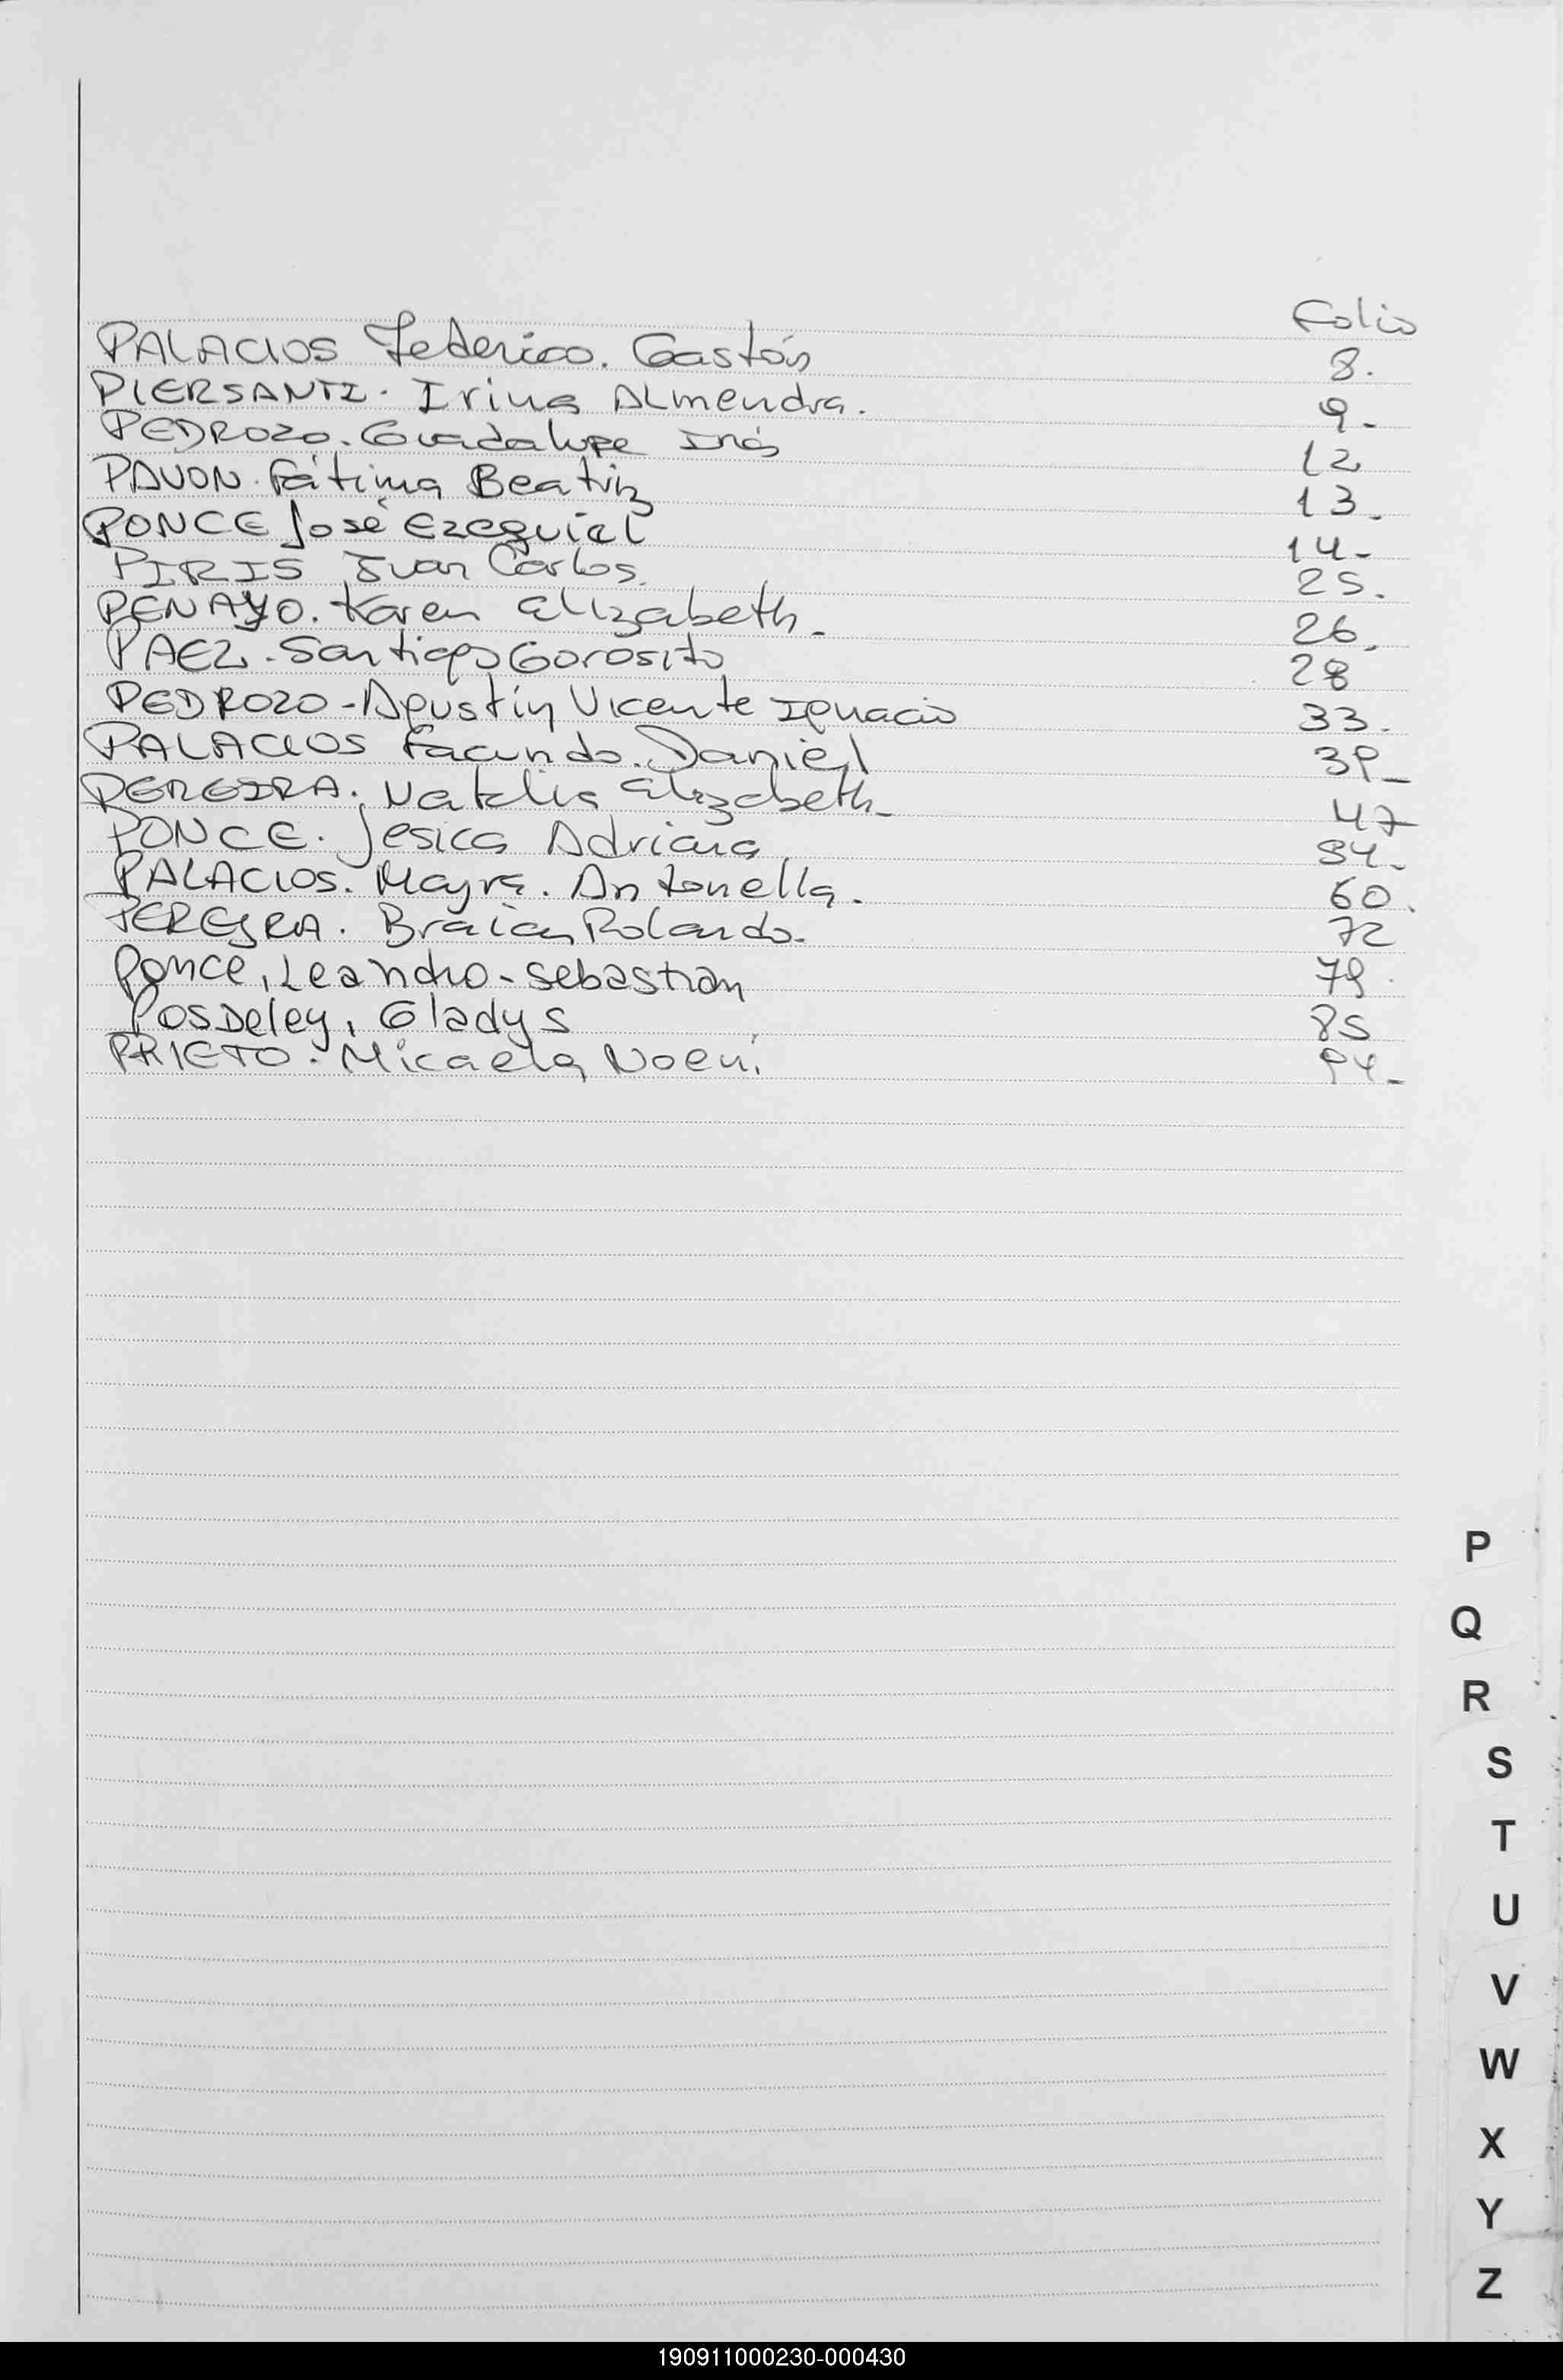 Folio
PALACIOS Federico. Gastón 8.
PIERSANTI. Irina ALmendra. 9.
PEDROZO. Guadalupe Inés 12
PAVON. Fátima Beatriz 13.
PONCE José Ezequiel 14.
PIRIS Juan Carlos. 25.
PENAYO. Karen Elizabeth. 26.
PAEZ. Santiago Gorosito 28
PEDROZO - Agustín Vicente Ignacio 33.
PALACIOS Facundo. Daniel 39_
PEREIRA. Natalia Elizabeth_ 47
PONCE. Jesica Adriana 54.
PALACIOS. Mayra. Antonella. 60.
PEREYRA. Braian Rolando. 72
Ponce, Leandro - Sebastian 79.
POSDeley, Gladys 85
PRIETO. Micaela Noemí 94_
P
Q
R
S
T
U
V
W
X
Y
Z
190911000230-000430